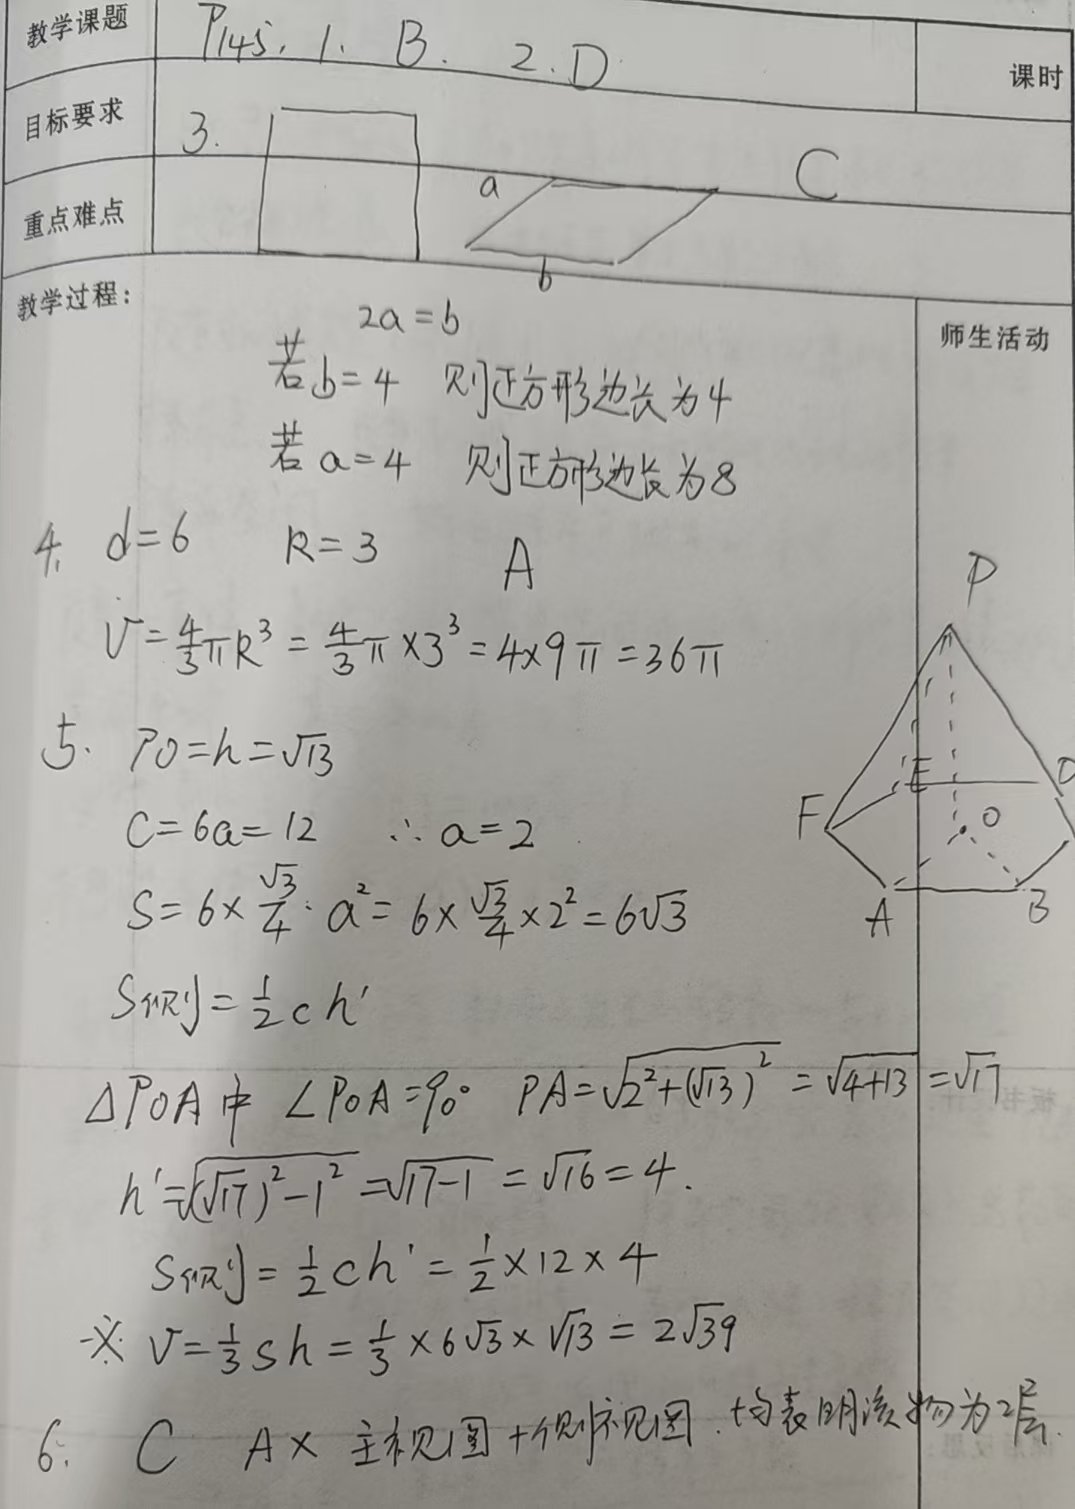 教学课题 P145. 1. B. 2. D 课时
目标要求
3. a b C
重点难点
教学过程: 师生活动
2a=b
若b=4 则正方形边长为4
若a=4 则正方形边长为8
4. d=6 R=3 A
V=4/3πR³=4/3π×3³=4×9π=36π
P
F E D O A B
5. PO=h=√13
C=6a=12 ∴a=2
S=6×√3/4·a²=6×√3/4×2²=6√3
S侧=1/2ch'
△POA中 ∠POA=90° PA=√(2²+(√13)²)=√(4+13)=√17
h'=√((√17)²-1²)=√(17-1)=√16=4.
S侧=1/2ch'=1/2×12×4
※ V=1/3sh=1/3×6√3×√13=2√39
6. C A× 主视图+侧视图.均表明该物为2层.